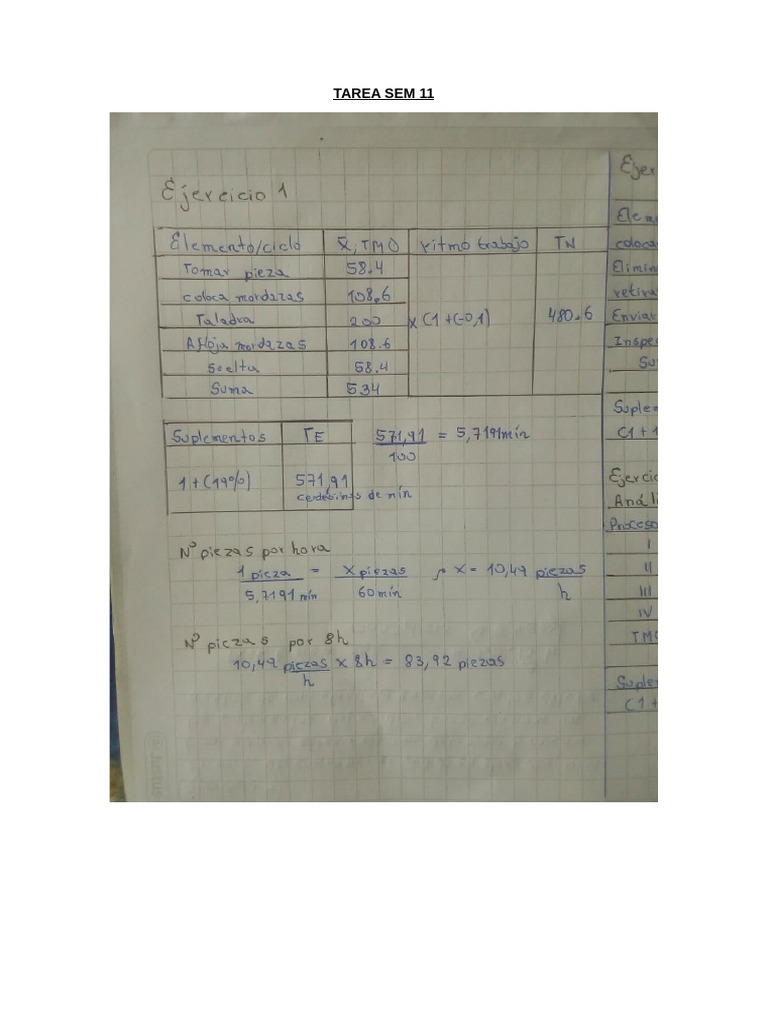 TAREA SEM 11
Ejercicio 1
Elemento/ciclo x̄, TMO ritmo trabajo TN
Tomar pieza 58.4
coloca mordazas 108.6
Taladra 200 x (1+(-0,1) 480.6
Afloja mordazas 108.6
Suelta 58.4
Suma 534
Suplementos TE 571,91 = 5,7191min
100
1+(19%) 571,91
centésimas de min
N° piezas por hora
1 pieza = x piezas x = 10,49 piezas
5,7191 min 60min h
N° piezas por 8h
10,49 piezas x 8h = 83,92 piezas
h
Ejer
Elem
coloca
Elimin
retira
Enviar
Inspe
Su
Suplem
(1+1
Ejercic
Análi
Proceso
I
II
III
IV
TMO
Suplem
(1+